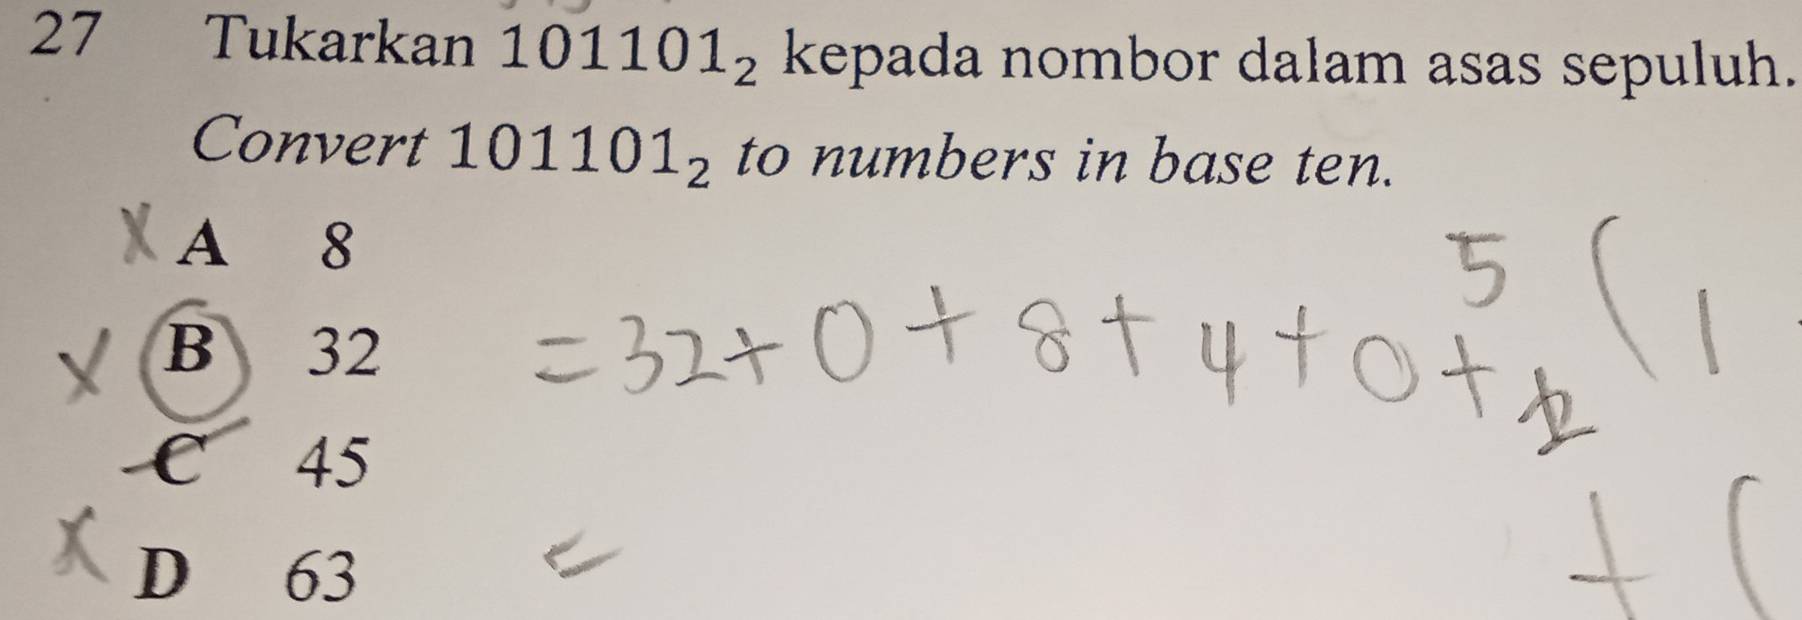 27 Tukarkan 101101₂ kepada nombor dalam asas sepuluh.
Convert 101101₂ to numbers in base ten.
X A 8
X B 32
C 45
X D 63
5 (1
= 32 + 0 + 8 + 4 + 0 +
=
+ (